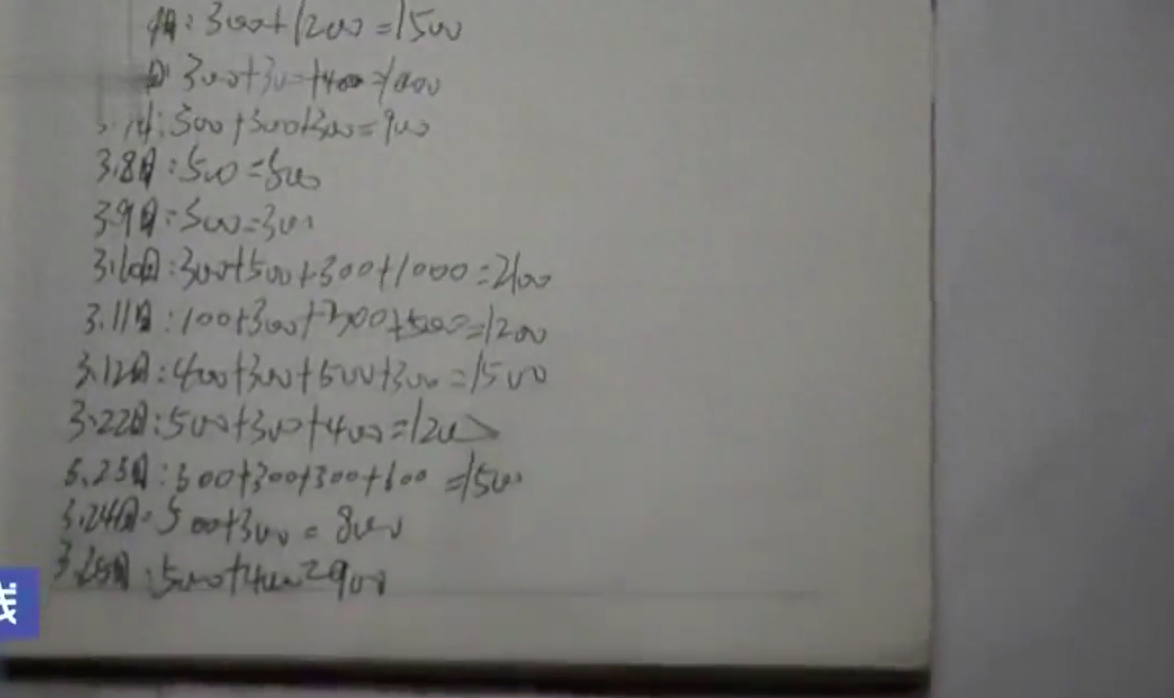 300+1200=1500
300+300+400=1000
300+300+300=900
3.8日:500=500
3.9日:300=300
3.10日:300+500+300+1000=2100
3.11日:100+300+300+500=1200
3.12日:400+300+500+300=1500
3.22日:500+300+400=1200
3.23日:300+300+300+600=1500
3.24日:500+300=800
3.25日:500+400=900
线